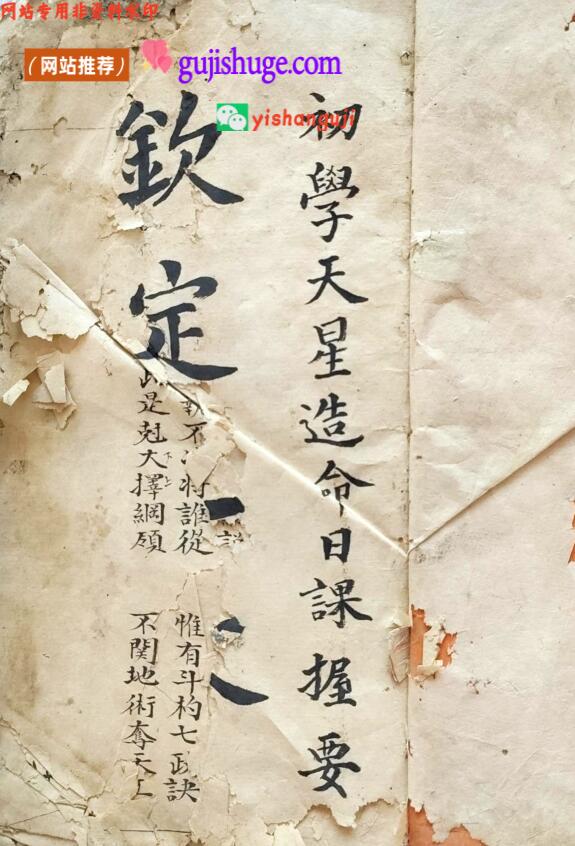 网站专用非资料水印
（网站推荐）
gujishuge.com
yishanguji
初學天星造命日課握要
欽定
不 將誰從
惟有斗杓七政訣
是尅大擇綱領
不関地術奪天